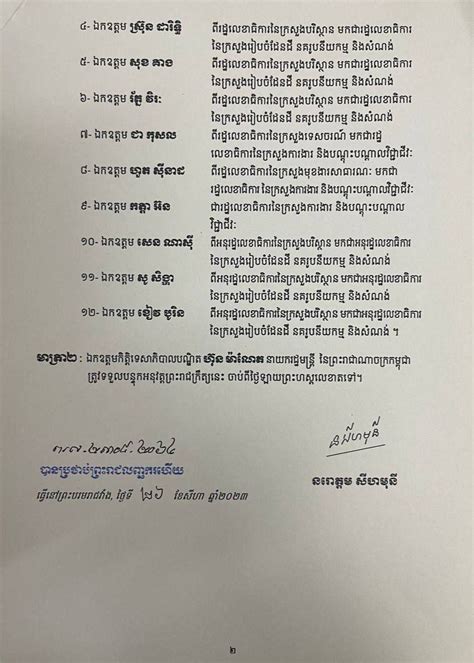 ៤- ឯកឧត្តម ស្រ៊ុន ដារិទ្ធិ ពីរដ្ឋលេខាធិការនៃក្រសួងបរិស្ថាន មកជារដ្ឋលេខាធិការ
នៃក្រសួងរៀបចំដែនដី នគរូបនីយកម្ម និងសំណង់
៥- ឯកឧត្តម សុខ គាង ពីរដ្ឋលេខាធិការនៃក្រសួងបរិស្ថាន មកជារដ្ឋលេខាធិការ
នៃក្រសួងរៀបចំដែនដី នគរូបនីយកម្ម និងសំណង់
៦- ឯកឧត្តម វិរៈ ពីរដ្ឋលេខាធិការនៃក្រសួងបរិស្ថាន មកជារដ្ឋលេខាធិការ
នៃក្រសួងរៀបចំដែនដី នគរូបនីយកម្ម និងសំណង់
៧- ឯកឧត្តម ជា កុសល ពីរដ្ឋលេខាធិការនៃក្រសួងទេសចរណ៍ មកជារដ្ឋ
លេខាធិការនៃក្រសួងការងារ និងបណ្តុះបណ្តាលវិជ្ជាជីវៈ
៨- ឯកឧត្តម ហួត ស៊ីនាដ ពីរដ្ឋលេខាធិការនៃក្រសួងមុខងារសាធារណៈ មកជា
រដ្ឋលេខាធិការនៃក្រសួងការងារ និងបណ្តុះបណ្តាលវិជ្ជាជីវៈ
៩- ឯកឧត្តម កត្តា អ៊ន ជារដ្ឋលេខាធិការនៃក្រសួងការងារ និងបណ្តុះបណ្តាល
វិជ្ជាជីវៈ
១០- ឯកឧត្តម សេន ណាស៊ី ពីអនុរដ្ឋលេខាធិការនៃក្រសួងបរិស្ថាន មកជាអនុរដ្ឋលេខាធិការ
នៃក្រសួងរៀបចំដែនដី នគរូបនីយកម្ម និងសំណង់
១១- ឯកឧត្តម សូ សិទ្ធា ពីអនុរដ្ឋលេខាធិការនៃក្រសួងបរិស្ថាន មកជាអនុរដ្ឋលេខាធិការ
នៃក្រសួងរៀបចំដែនដី នគរូបនីយកម្ម និងសំណង់
១២- ឯកឧត្តម ខៀវ បូរិន ពីអនុរដ្ឋលេខាធិការនៃក្រសួងបរិស្ថាន មកជាអនុរដ្ឋលេខាធិការ
នៃក្រសួងរៀបចំដែនដី នគរូបនីយកម្ម និងសំណង់ ។
មាត្រា២ : ឯកឧត្តមកិត្តិទេសាភិបាលបណ្ឌិត ហ៊ុន ម៉ាណែត នាយករដ្ឋមន្ត្រី នៃព្រះរាជាណាចក្រកម្ពុជា
ត្រូវទទួលបន្ទុកអនុវត្តព្រះរាជក្រឹត្យនេះ ចាប់ពីថ្ងៃឡាយព្រះហស្តលេខាតទៅ។
ព.ស. ២៣០៨. ២១៦៤
បានប្រថាប់ព្រះរាជលញ្ឆករហើយ
ធ្វើនៅព្រះបរមរាជវាំង, ថ្ងៃទី ២៦ ខែសីហា ឆ្នាំ២០២៣
នរោត្តម សីហមុនី
២